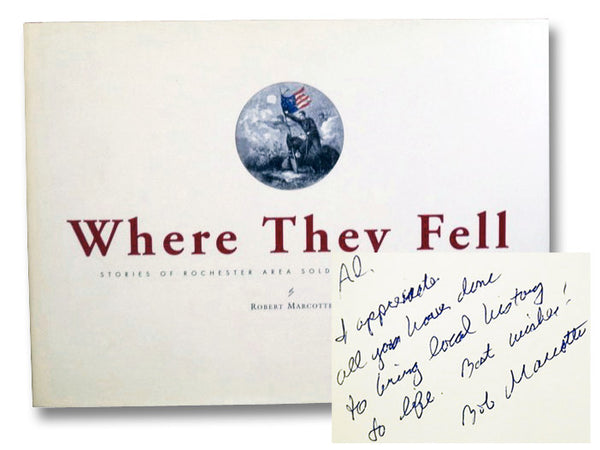 Where They Fell
STORIES OF ROCHESTER AREA SOLD
BY
ROBERT MARCOTTE
Al,
I appreciate
all you have done
to bring local history
to life. Best wishes!
Bob Marcotte